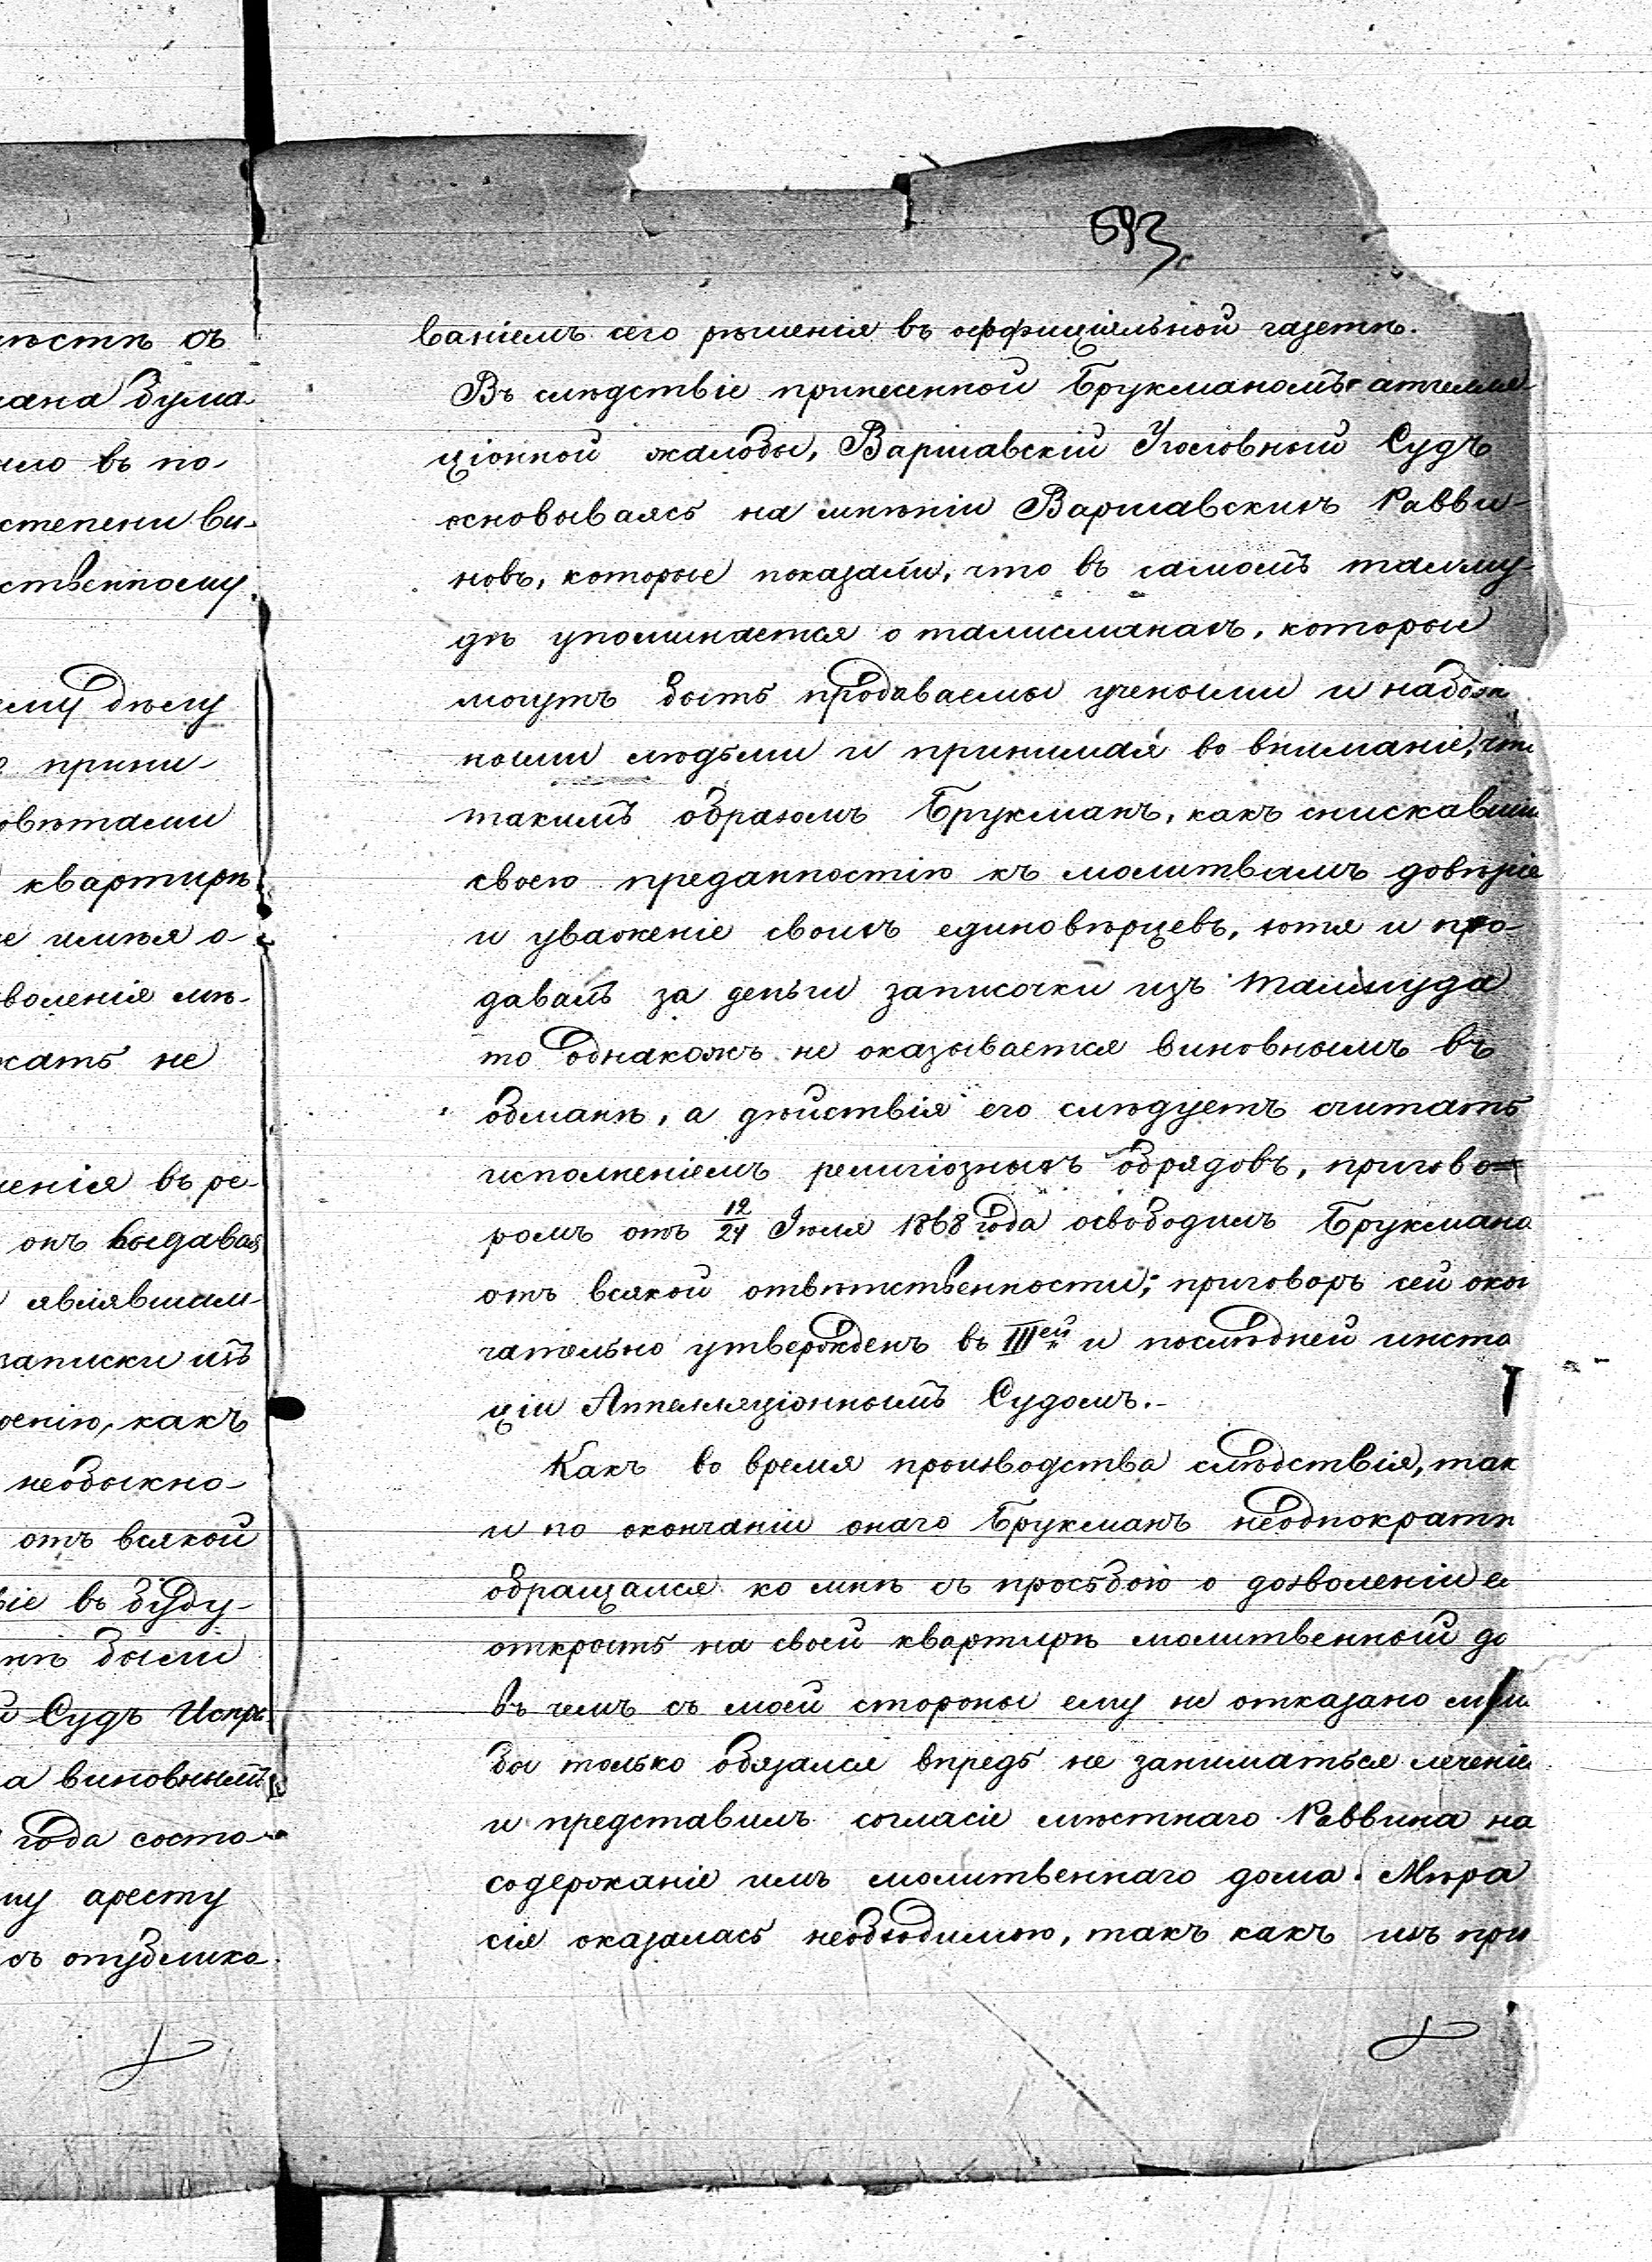 693
ваніемъ сего рѣшенія въ оффиціяльной газетѣ.
Въ слѣдствіе принесенной Брукманомъ аппелля-
ціонной жалобы, Варшавскій Уголовный Судъ
основываясь на мнѣніи Варшавскихъ Равви-
новъ, которые показали, что въ самомъ талму-
дѣ упоминается о талисманахъ, которые
могутъ быть продаваемы учеными и набож
ными людьми и принимая во вниманіе, что
такимъ образомъ Брукманъ, какъ снискавши
своею преданностію къ молитвамъ довѣріе
и уваженіе своихъ единовѣрцевъ, хотя и про-
давалъ за деньги записочки изъ талмуда
то однакожъ не оказывается виновнымъ въ
обманѣ, а дѣйствія его слѣдуетъ считать
исполненіемъ религіозныхъ обрядовъ, пригово-
ромъ отъ 12/24 Іюля 1868 года освободилъ Брукмана
отъ всякой отвѣтственности; приговоръ сей окон
чательно утвержденъ въ IIIей и послѣдней инста
ціи Аппелляціоннымъ Судомъ.-
Какъ во время производства слѣдствія, так
и по окончаніи онаго Брукманъ неоднократн
обращался ко мнѣ съ просьбою о дозволеніи е
открыть на своей квартирѣ молитвенный до
въ чемъ съ моей стороны ему не отказано
бы только обязался впредь не заниматься леченіе
и представилъ согласіе мѣстнаго Раввина на
содержаніе имъ молитвеннаго дома. Мѣра
сія оказалась необходимою, такъ какъ изъ при
ѣстѣ съ
мана бума-
въ по-
степени ви-
ственному
ему дѣлу
прини-
овѣтами
квартирѣ
не имѣя о-
воленія мѣ-
жать не
ченія въ ре-
онъ выдавая
являвшим-
записки изъ
ренію, какъ
необыкно-
отъ всякой
віе въ буду-
были
й Судъ Испр
а виновнымъ
года состо-
му аресту
съ опублико-